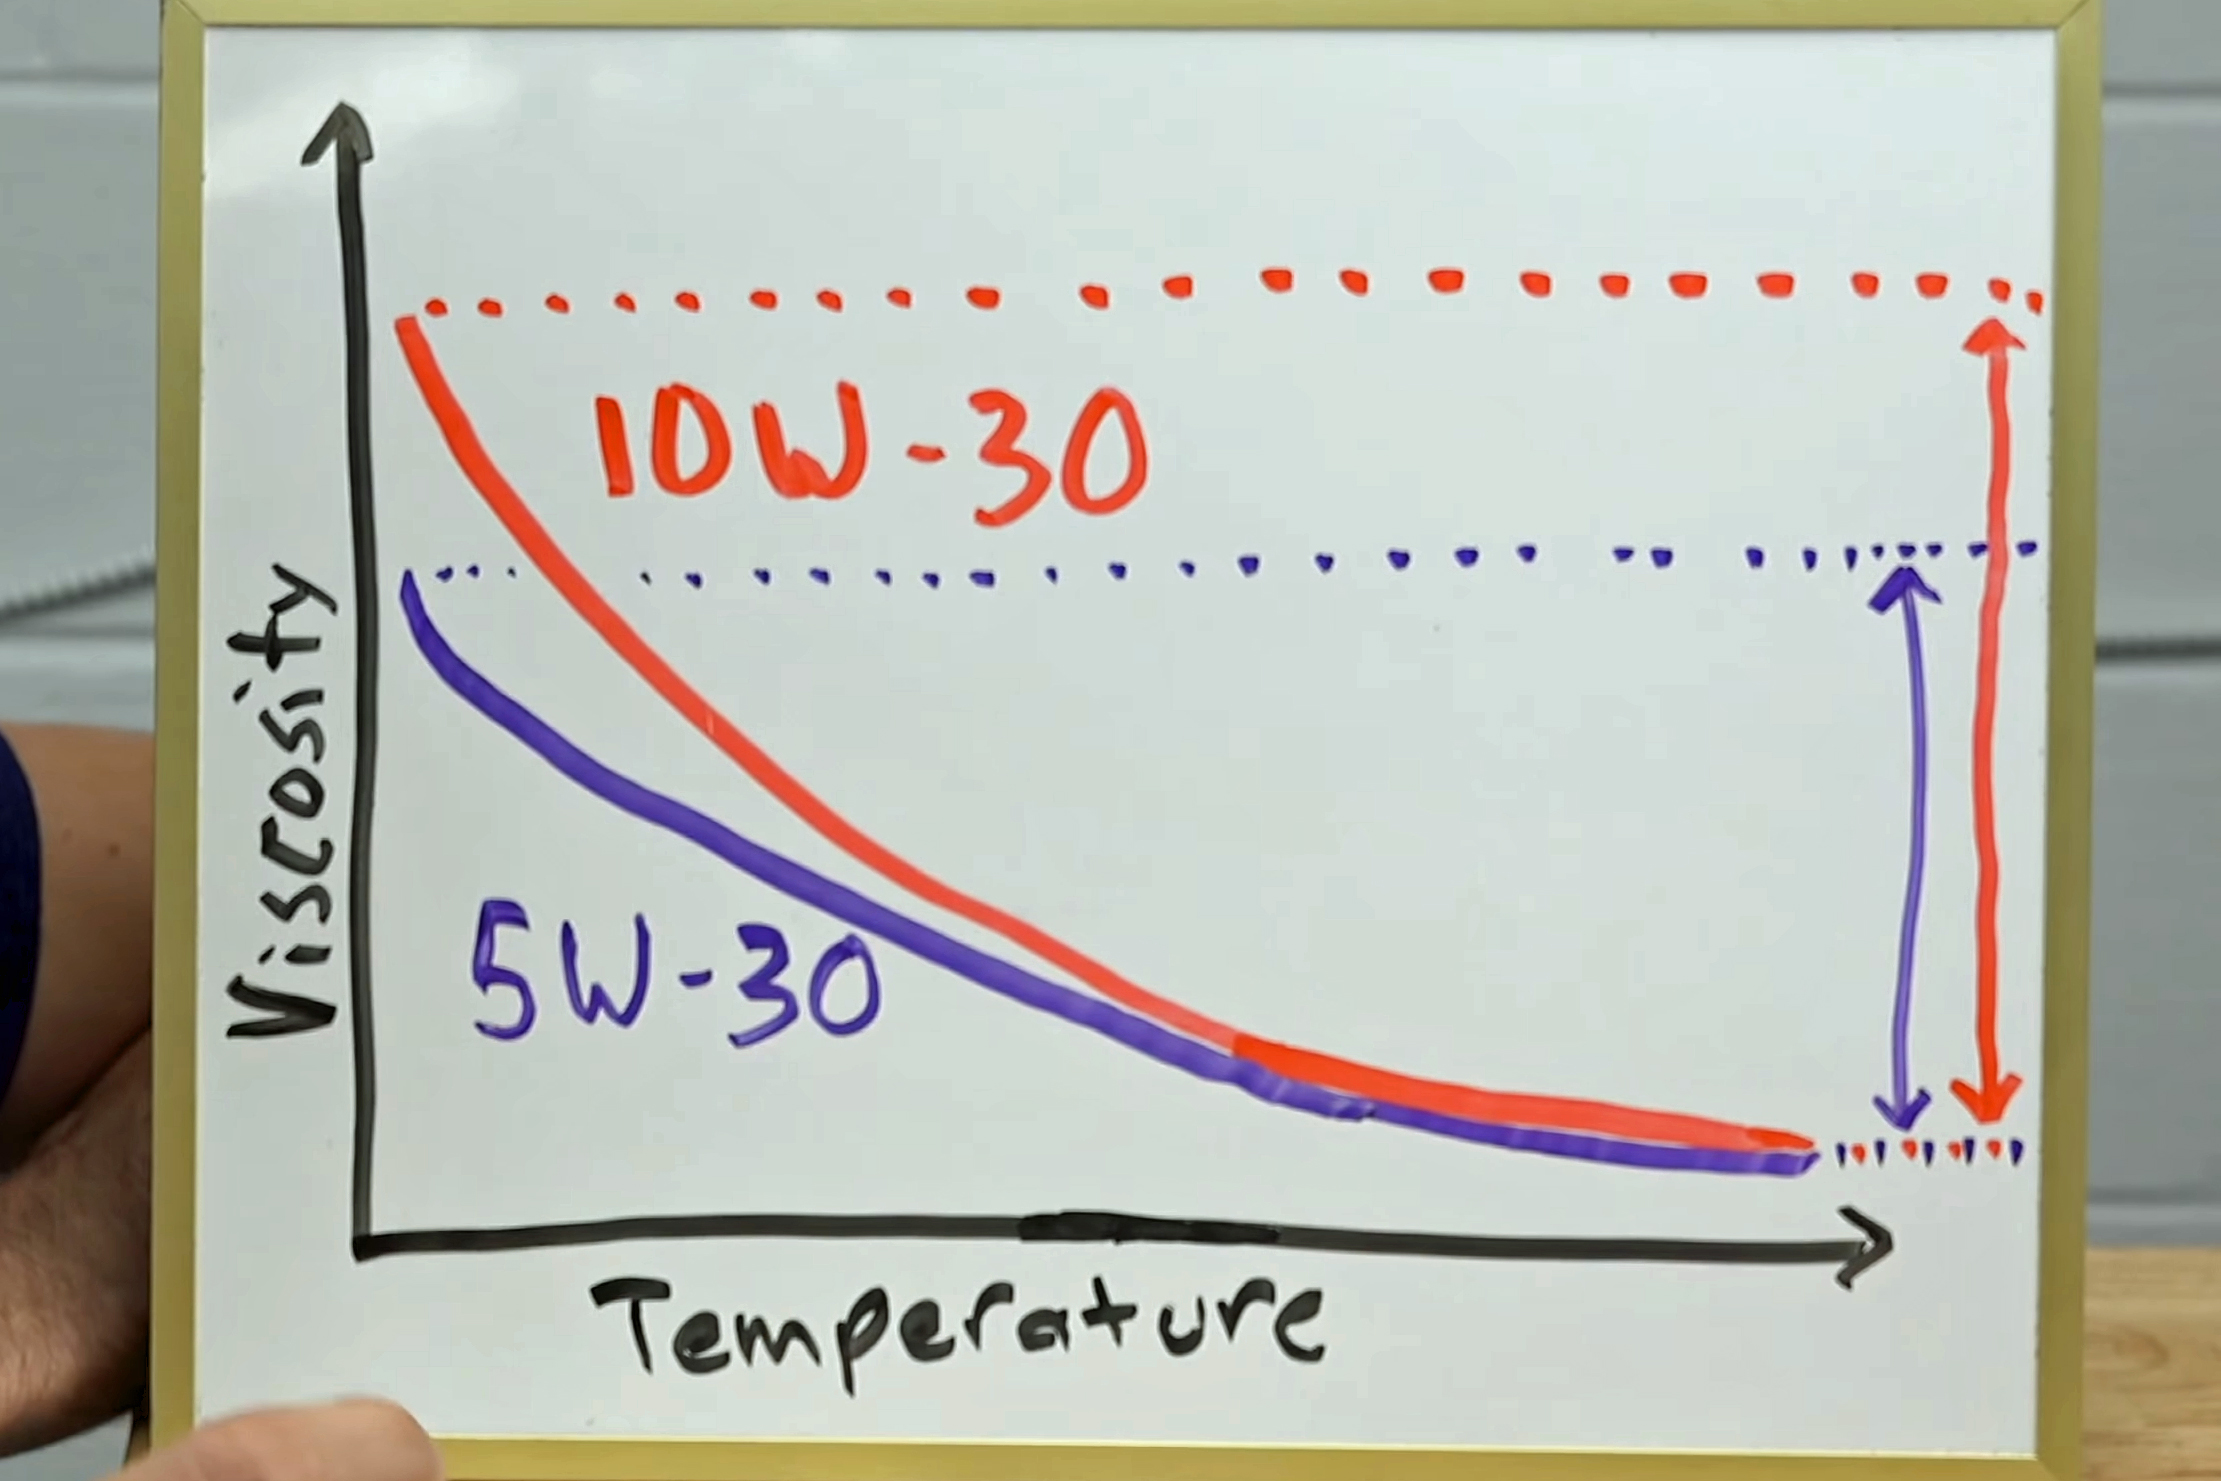 10W-30
Viscosity
5W-30
Temperature